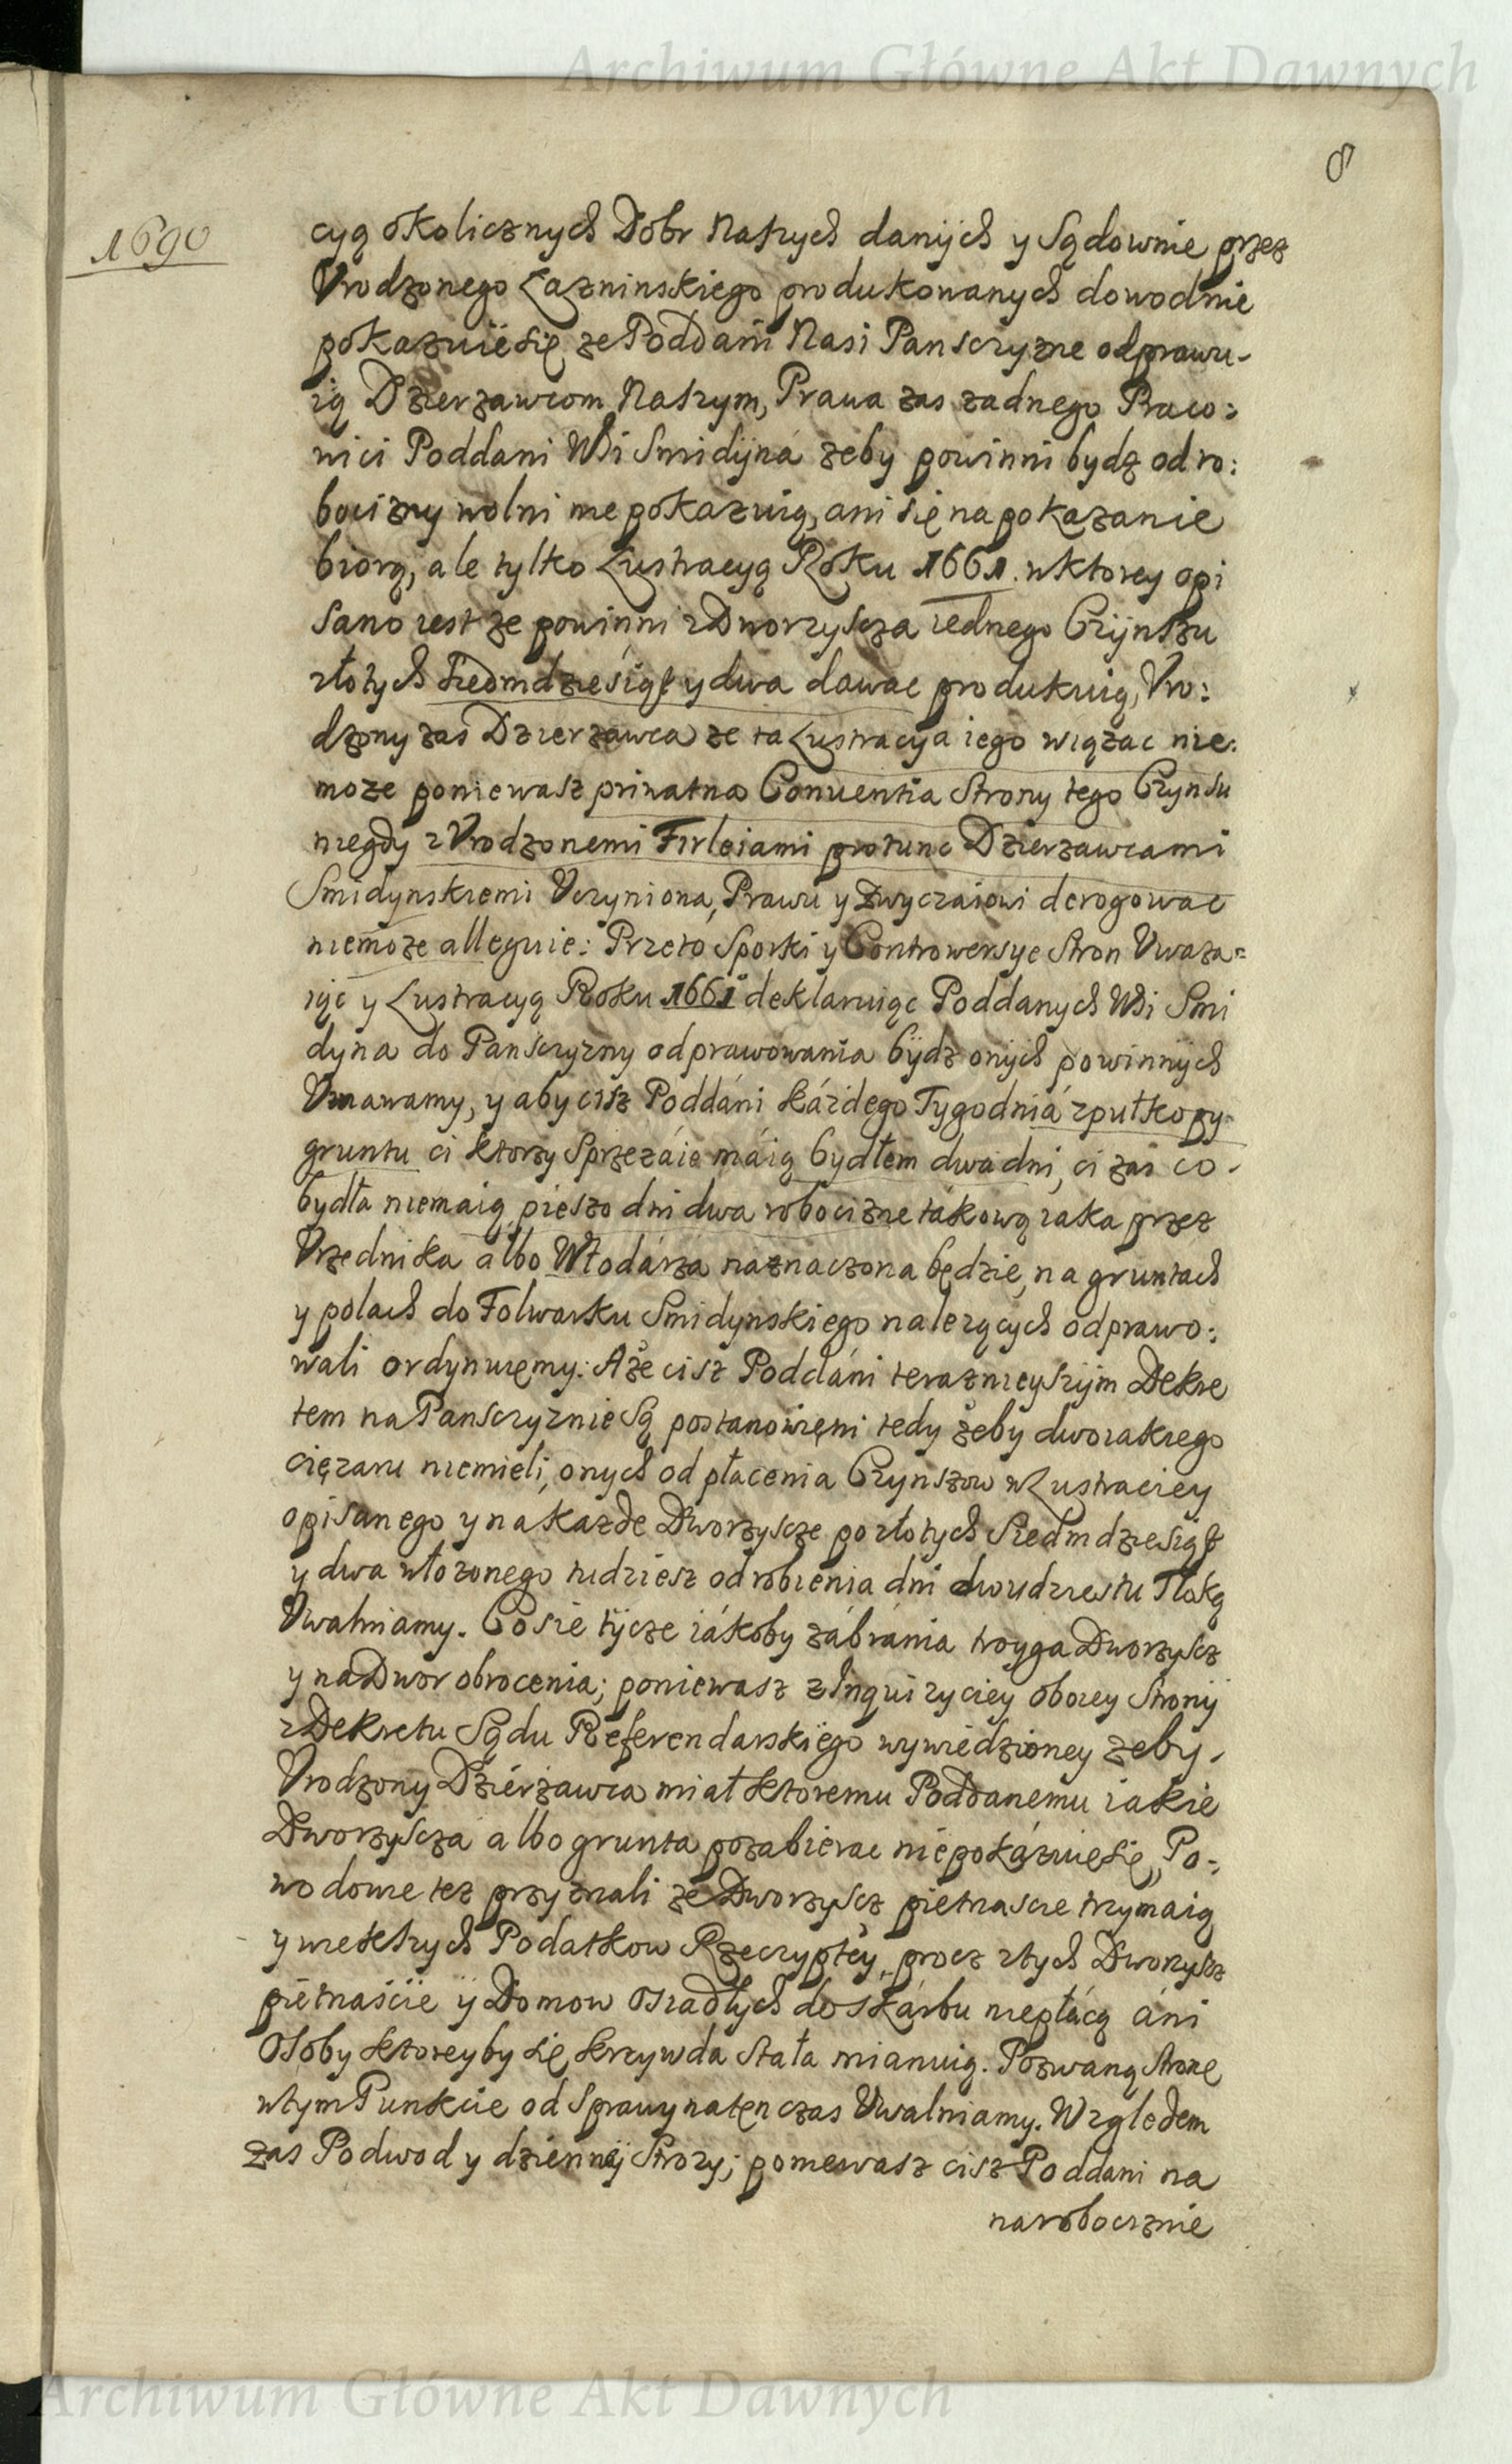 Archiwum Główne Akt Dawnych
8
1690
cyą okolicznych Dobr Naszych danÿch y Sądownie przez
Vrodzonego Łazninskiego produkowanych dowodnie
pokazuie się, ze Poddani Nasi Panszczyzne odprawu-
ią Dzierzawcom Naszym, Prawa zas zadnego Praco:
nici Poddani Wsi Smidÿna zeby powinni bydz od ro:
bocizny wolni nie pokazuią, ani się na pokazanie
biorą, ale tylko Lustracyą Roku 1661. w ktorey opi
sano iest ze powinni z Dworzyscza iednego Czÿnszu
złotych Siedmdziesiąt y dwa dawac produkuią, Vro:
dzony zas Dzierzawca ze ta Lustracya iego wiązac nie:
moze poniewasz priwatna Conuentia Strony tego Czynsu
niegdy z Vrodzonemi Firleiami protunc Dzierzawcami
Smidynskiemi Vczyniona, Prawu y Zwyczaiowi derogowac
niemoze alleguie: Przeto Sporki y Controwersye Stron Vwaza=
iąc y Lustracyą Roku 1661 deklaruiąc Poddanych Wsi Smi
dyna do Panszczyzny odprawowania bÿdz onÿch powinnÿch
Vznawamy, y aby cisz Poddáni káżdego Tygodniá z pułkopy
gruntu ci ktorzy Sprzęzáie máią bydłem dwa dni, ci zas co
bydła niemaią pieszo dni dwa robociznę tákową iaka przez
Vrzędnika albo Włodárzá naznaczona będzie, na gruntach
y polach do Folwarku Smidynskiego nalezących odprawo:
wali ordynuięmy: A że cisz Poddáni teraznieyszÿm Dekre
tem na Panszczyznie Są postanowięni tedy żeby dwoiakiego
cięzaru niemieli, onych od płacenia Czynszow w Lustraciey
opisanego y na każde Dworzyscze po złotych Siedmdziesiąt
y dwa włozonego tudziesz odrobienia dni dwudziestu Tłoką
Vwalniamy. Co sie tÿcze iákoby zábránia troyga Dworzyscz
y na Dwor obrocenia; poniewasz z Inquizyciey oboiey Stronÿ
z Dekretu Sądu Referendarskiego wywiedzioney zeby
Vrodzony Dzierżawca miał ktoremu Poddanemu iakie
Dworzyscza albo grunta pozabierac niepokázuie się, Po-
wodowie tez przyznali ze Dworzyscz pietnascie trzymaią
y wiekszych Podatkow Rzeczyptey, procz z tych Dworzyscz
piętnaście ÿ Domow Osiadłych do Skárbu niepłácą áni
Osoby ktoreyby się krzywda Stała mianuią. Pozwaną Stronę
w tym Punkcie od Sprawy natęnczas Vwalniamy. Względem
zas Podwod y dziennęÿ Strozy; poniewasz cisz Poddani na
na robociznie
Archiwum Główne Akt Dawnych